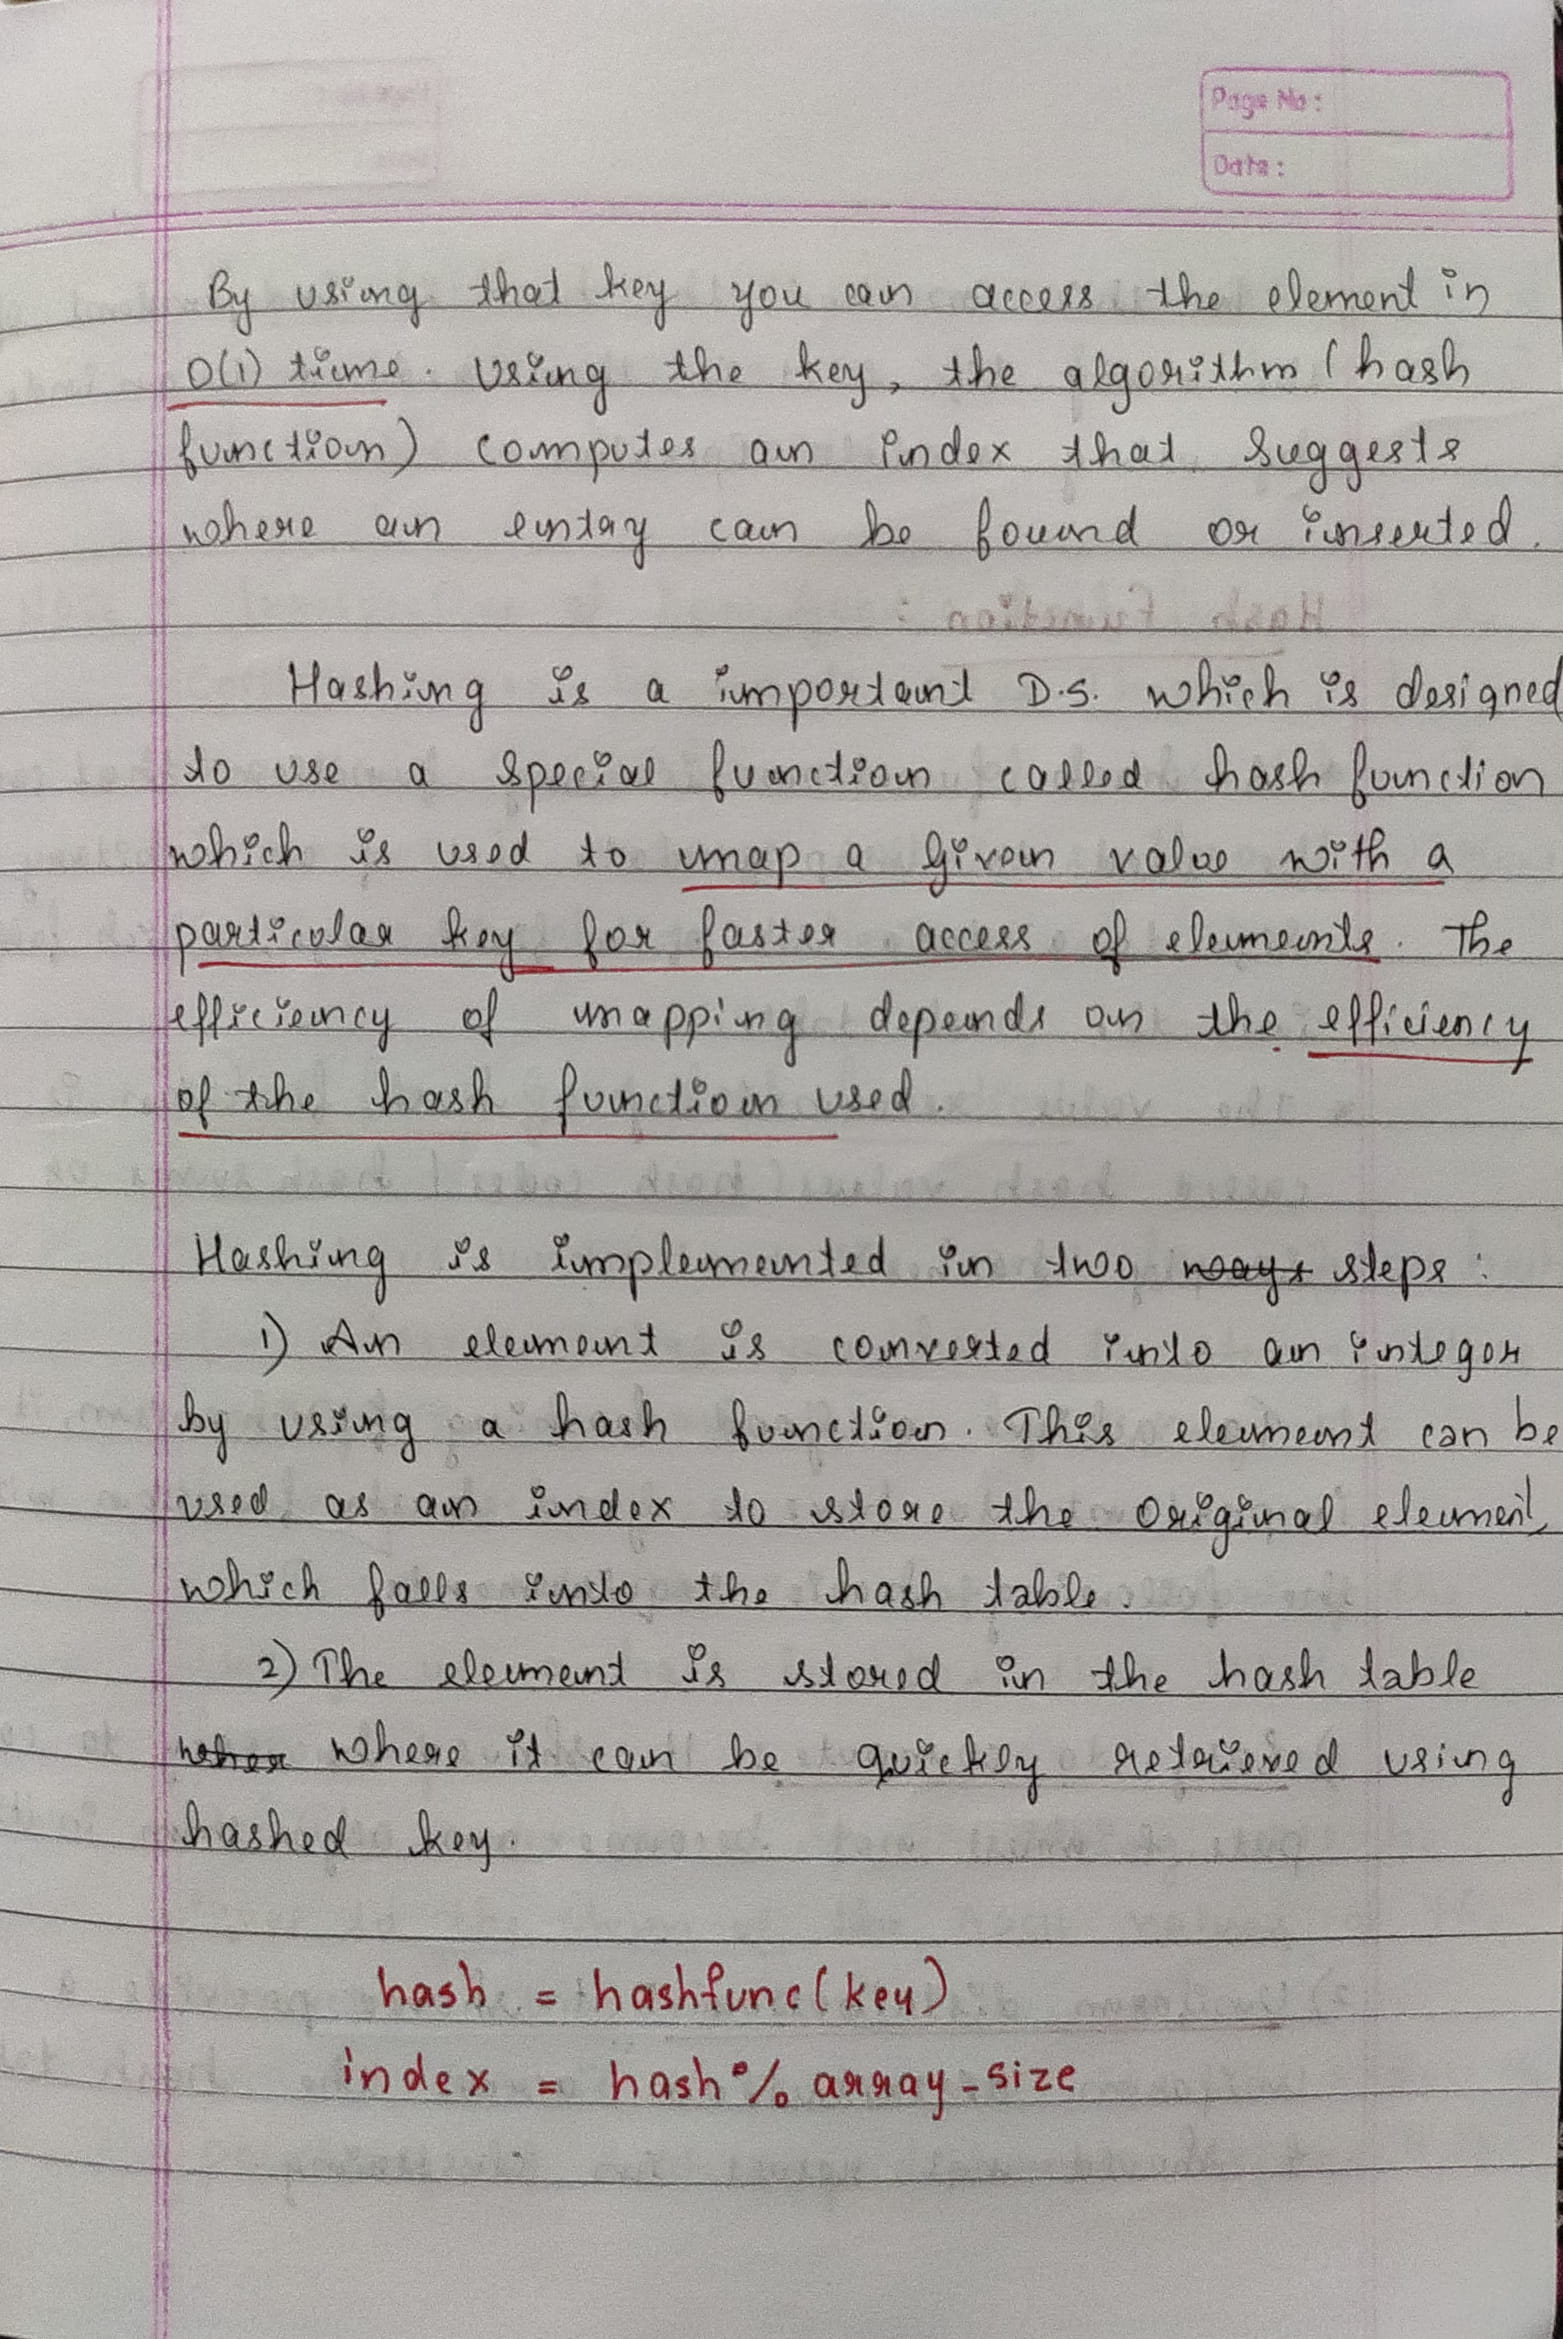 Page No:
Date:
By using that key you can access the element in
O(1) time. Using the key, the algorithm (hash
function) computes an index that suggests
where an entry can be found or inserted.
Hashing is a important D.S. which is designed
to use a special function called hash function
which is used to map a given value with a
particular key for faster access of elements. The
efficiency of mapping depends on the efficiency
of the hash function used.
Hashing is implemented in two ways steps:
1) An element is converted into an integer
by using a hash function. This element can be
used as an index to store the original element,
which falls into the hash table.
2) The element is stored in the hash table
where where it can be quickly retrieved using
hashed key.
hash = hashfunc(key)
index = hash % array_size